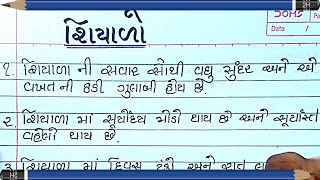 SOHS
Date
શિયાળો
૧. શિયાળા ની સવાર સૌથી વધુ સુંદર અને એ
વખત ની ઠંડી ગુલાબી હોય છે.
૨. શિયાળા માં સૂર્યોદય મોડો થાય છે અને સૂર્યાસ્ત
વહેલો થાય છે.
૩. શિયાળા માં દિવસ ટૂંકો અને રાત